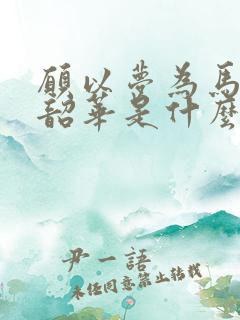 願以夢為馬
韶華是什麼
尹一語
未經同意禁止轉載